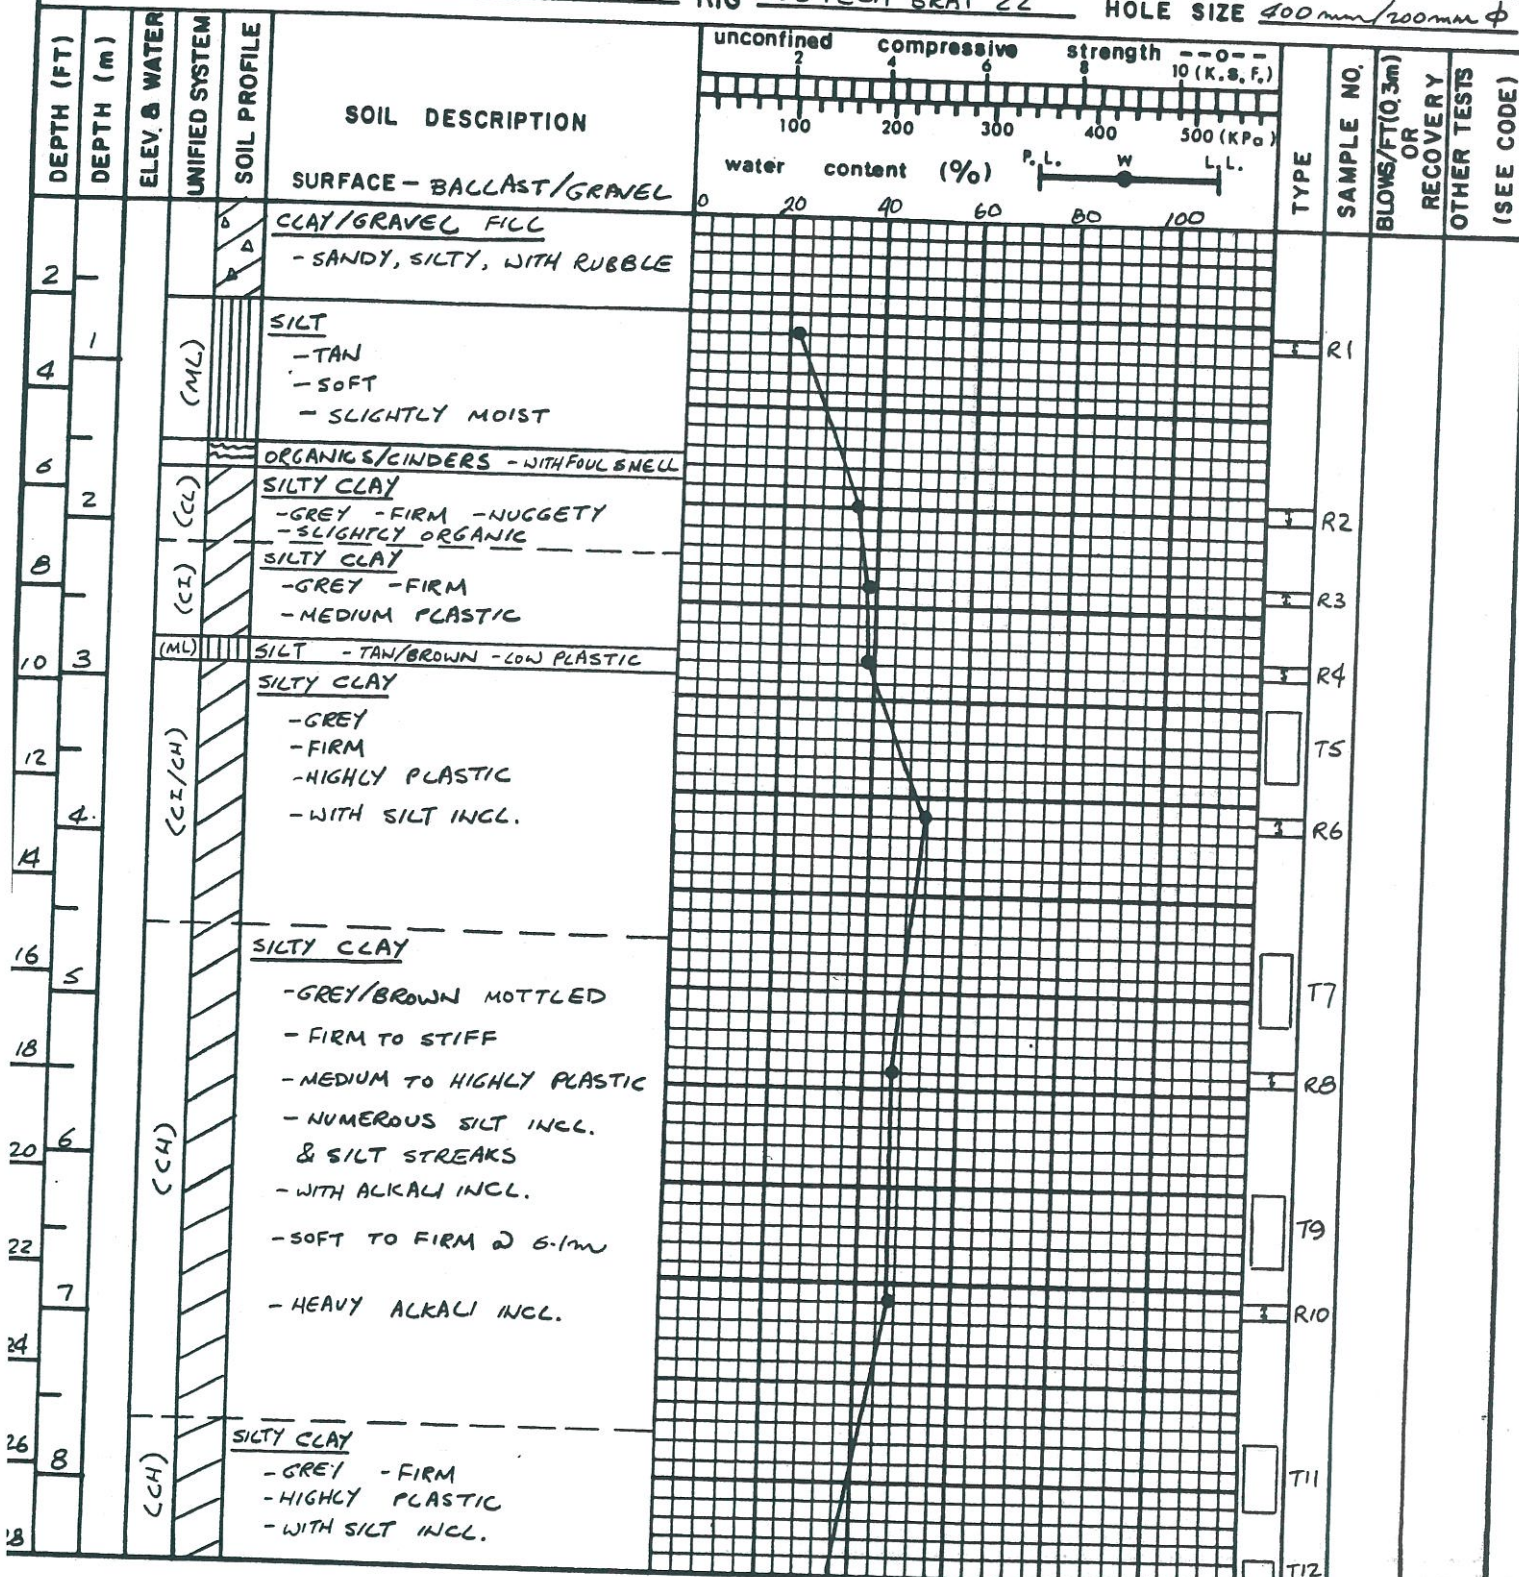 RIG
BRAT 22
HOLE SIZE 400mm/200mm ϕ
DEPTH (FT)
DEPTH (m)
ELEV. & WATER
UNIFIED SYSTEM
SOIL PROFILE
SOIL DESCRIPTION
SURFACE - BALLAST/GRAVEL
unconfined compressive strength --o--
2 4 6 8 10 (K.S.F.)
100 200 300 400 500 (KPa)
water content (%) P.L. W L.L.
0 20 40 60 80 100
TYPE
SAMPLE NO.
BLOWS/FT(0.3m)
OR
RECOVERY
OTHER TESTS
(SEE CODE)
CLAY/GRAVEL FILL
- SANDY, SILTY, WITH RUBBLE
2
SILT
1
R1
- TAN
(ML)
4
- SOFT
- SLIGHTLY MOIST
ORGANICS/CINDERS - WITH FOUL SMELL
6
SILTY CLAY
(CL)
2
- GREY - FIRM - NUGGETY
R2
- SLIGHTLY ORGANIC
SILTY CLAY
8
- GREY - FIRM
(CI)
R3
- MEDIUM PLASTIC
(ML)
SILT - TAN/BROWN - LOW PLASTIC
10
3
R4
SILTY CLAY
- GREY
- FIRM
T5
12
(CI/CH)
- HIGHLY PLASTIC
- WITH SILT INCL.
4.
R6
14
SILTY CLAY
16
5
- GREY/BROWN MOTTLED
T7
- FIRM TO STIFF
18
- MEDIUM TO HIGHLY PLASTIC
R8
- NUMEROUS SILT INCL.
20
6
& SILT STREAKS
(CH)
- WITH ALKALI INCL.
T9
- SOFT TO FIRM @ 6.1m
22
7
- HEAVY ALKALI INCL.
R10
24
SILTY CLAY
26
8
- GREY - FIRM
(CH)
T11
- HIGHLY PLASTIC
- WITH SILT INCL.
T12